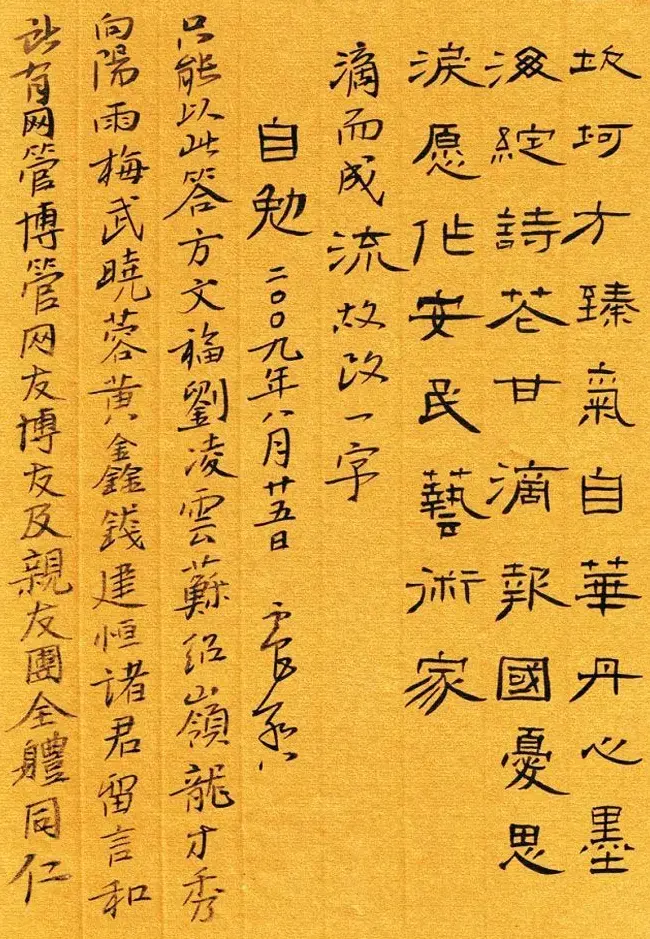 坎坷方臻氣自華丹心墨
海綻詩花甘滴報國憂思
淚愿作安民藝術家
滴而成流故改一字
自勉 二〇〇九年八月廿五日
只能以此答方文福劉凌雲蘇紹嶺龍才秀
向陽雨梅武曉蓉黃鑫錢建恒諸君留言和
所有网管博管网友博友及親友團全體同仁